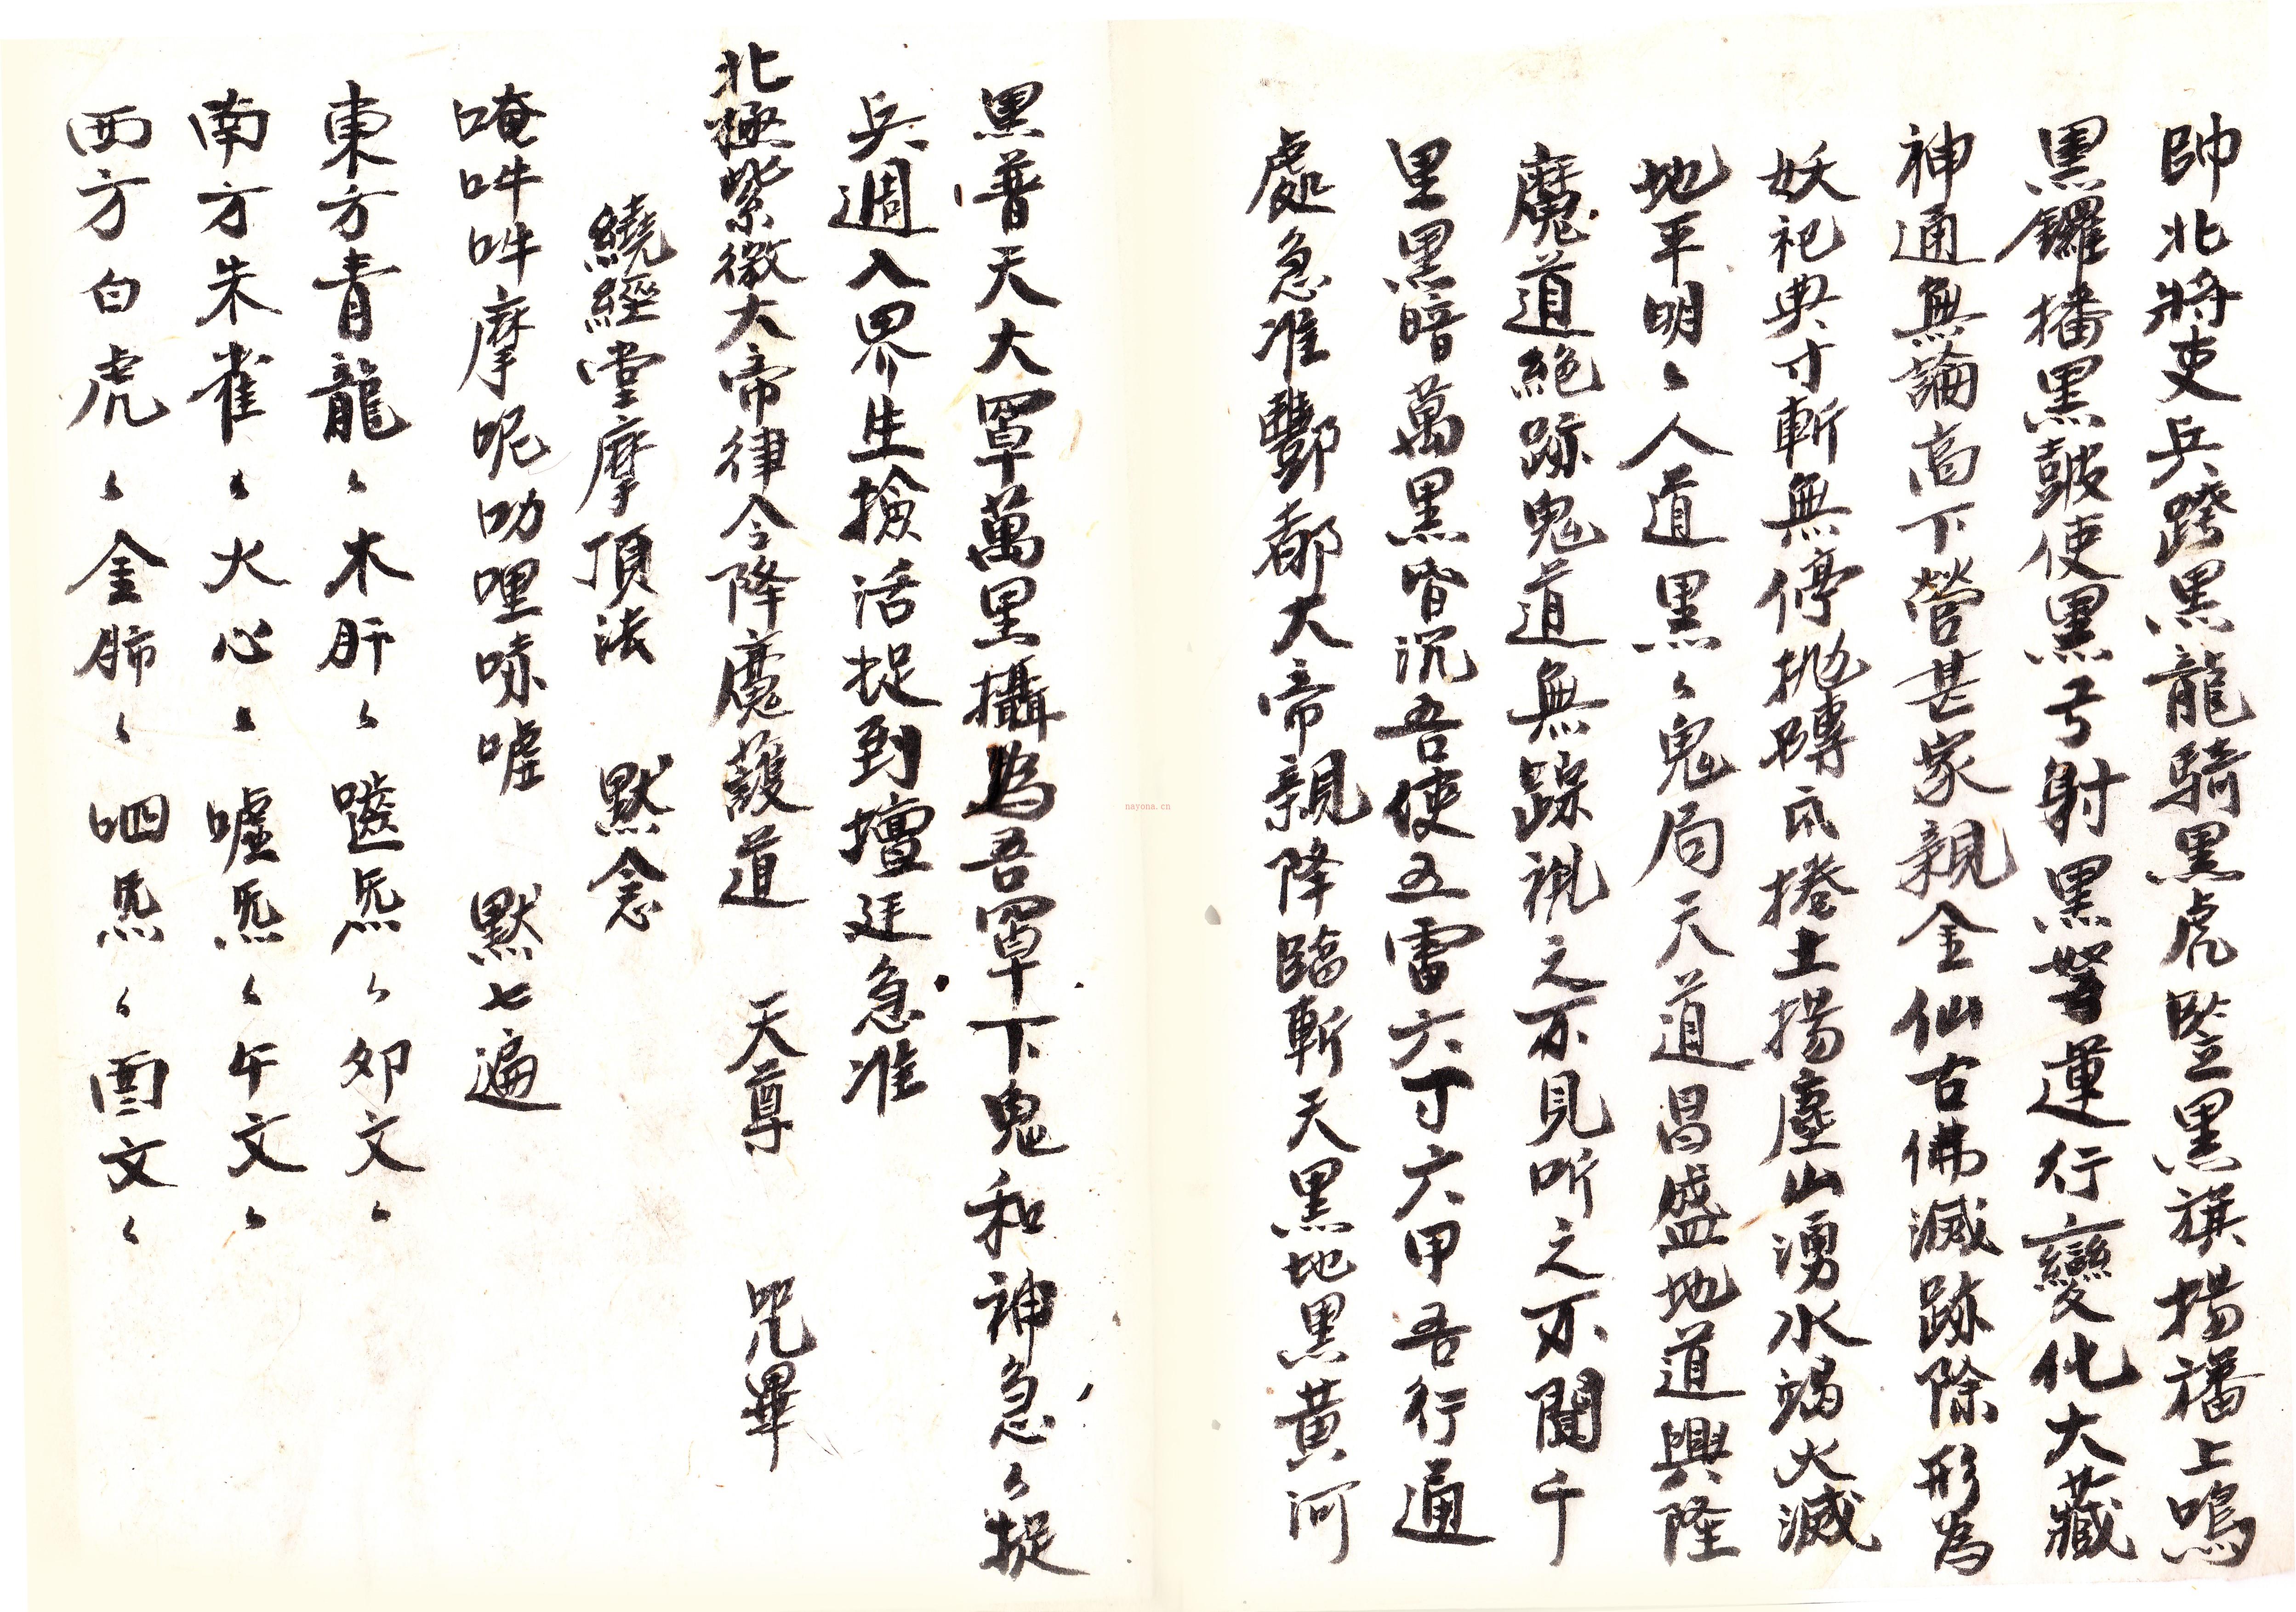 帥北將吏兵跨黑龍騎黑虎竪黑旗揚旙上鳴
黑鑼播黑皷使黑弓射黑弩運行變化大藏
神通無論高下營甚家親金仙古佛滅跡除形為
妖祀典寸斬無停拋磚瓦捲土揚塵山湧水竭火滅
地平明〻人道黑〻鬼局天道昌盛地道興隆
魔道絕跡鬼道無踪視之不見听之不聞千
里黑暗萬黑昏沉吾使五雷六丁六甲吾行通
處急准酆都大帝親降臨斬天黑地黑黃河
黑普天大罩萬里攝為吾罩下鬼和神急〻捉
兵週入界生撿活捉到壇廷急准
北極紫微大帝律令降魔護道 天尊 咒畢
繞經堂摩頂法 默念
唵吽吽摩呢叻哩㖶嘘 默七遍
東方青龍〻木肝〻嚙炁〻卯文〻
南方朱雀〻火心〻嘘炁〻午文〻
西方白虎〻金肺〻呬炁〻酉文〻
nayona.cn